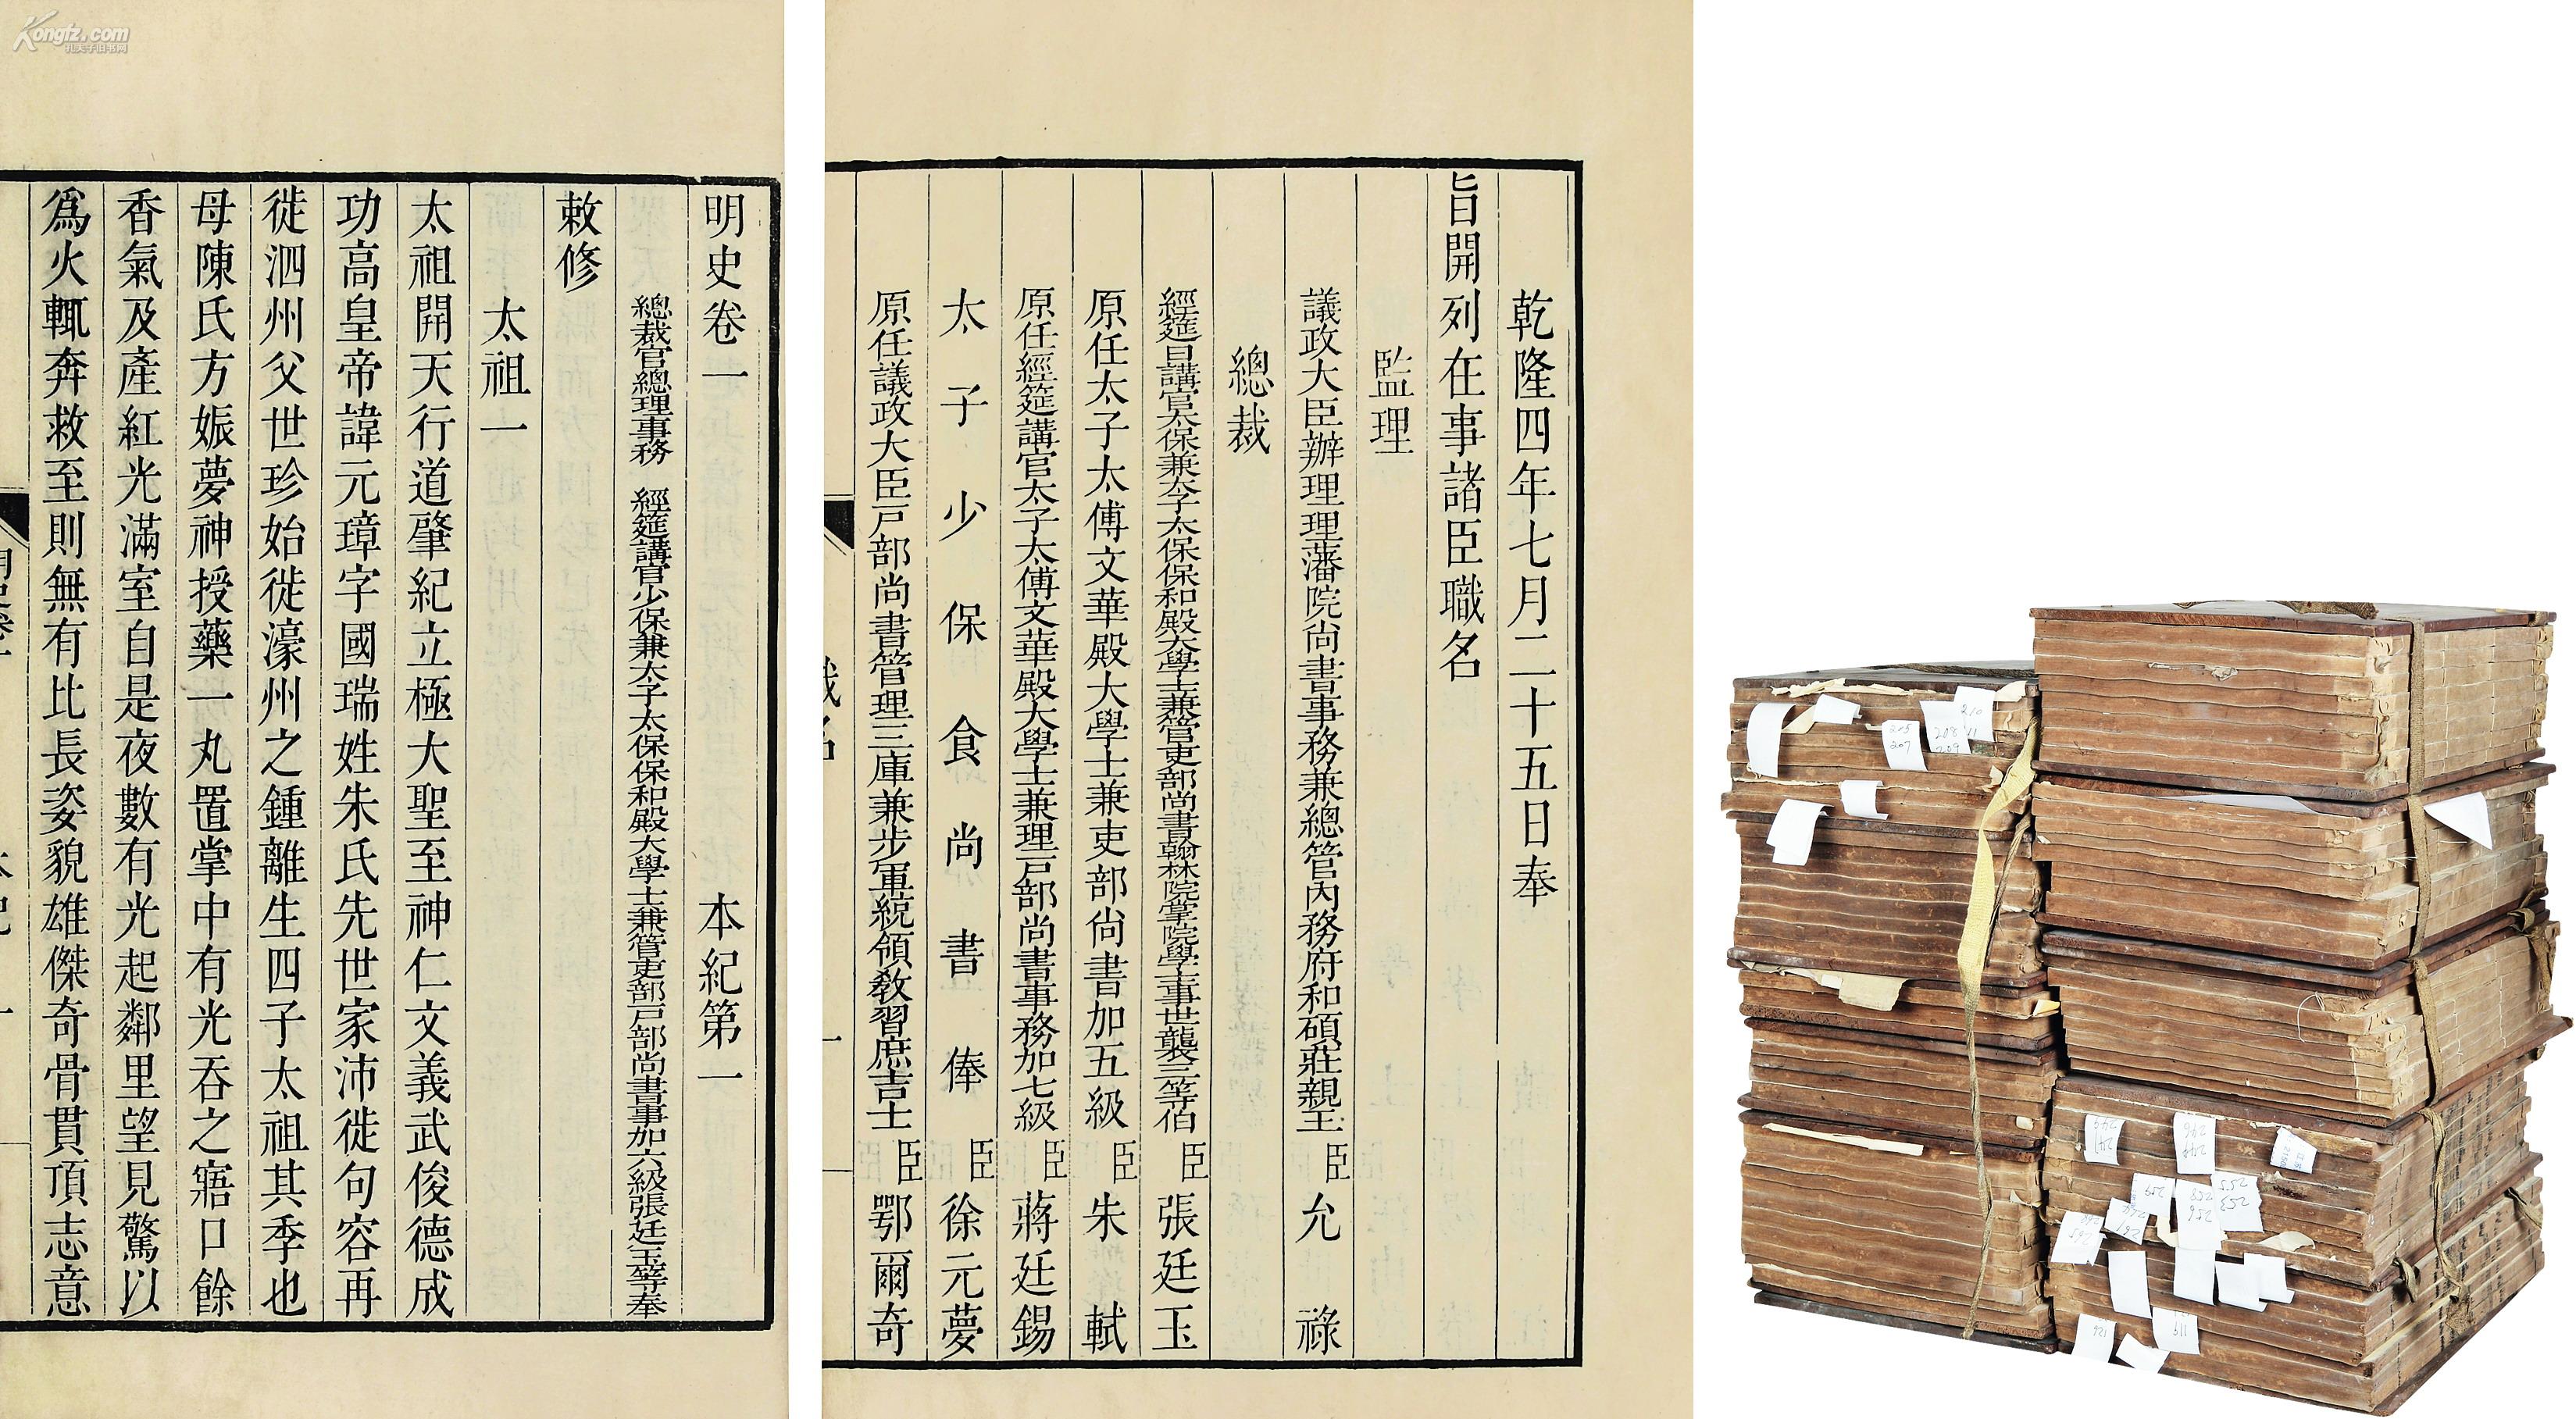 Kongfz.com
孔夫子旧书网
明史卷一 本紀第一
總裁官總理事務 經筵講官少保兼太子太保保和殿大學士兼管吏部戶部尚書事加六級張廷玉等奉
敕修
太祖一
太祖開天行道肇紀立極大聖至神仁文義武俊德成
功高皇帝諱元璋字國瑞姓朱氏先世家沛徙句容再
徙泗州父世珍始徙濠州之鍾離生四子太祖其季也
母陳氏方娠夢神授藥一丸置掌中有光吞之寤口餘
香氣及產紅光滿室自是夜數有光起鄰里望見驚以
爲火輒奔救至則無有比長姿貌雄傑奇骨貫頂志意
乾隆四年七月二十五日奉
旨開列在事諸臣職名
監理
議政大臣辦理理藩院尚書事務兼總管內務府和碩莊親王 臣 允祿
總裁
經筵日講官太保兼太子太保保和殿大學士兼管吏部尚書翰林院掌院學士事世襲三等伯 臣 張廷玉
原任太子太傅文華殿大學士兼吏部尚書加五級 臣 朱軾
原任經筵講官太子太傅文華殿大學士兼理戶部尚書事務加七級 臣 蔣廷錫
太子少保食尚書俸 臣 徐元夢
原任議政大臣戶部尚書管理三庫兼步軍統領教習庶吉士 臣 鄂爾奇
職名
一
210
215
207
208 11
209